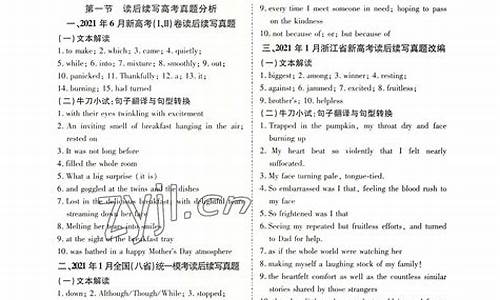 第一节 读后续写高考真题分析
一、2021 年 6 月新高考(Ⅰ,Ⅱ)卷读后续写真题
(一)文本解读
1. to make; 2. which; 3. came; 4. quietly;
5. while; 6. into; 7. mixture; 8. smoothly; 9. out;
10. panicked; 11. Thankfully; 12. a; 13. it;
14. burning; 15. had turned
(二)牛刀小试:句子翻译与句型转换
1. with their eyes twinkling with excitement
2. An inviting smell of breakfast hanging in the air; rested on
3. It was not long before
4. filled the whole room
5. What a big surprise (it is)
6. and goggled at the twins and the dishes
7. Lost in the delicious breakfast; with delightful tears streaming down her face
8. Melting her tears into smiles
9. at the sight of the breakfast tray
10. was bathed in a happy Mother's Day atmosphere
二、2021 年 1 月全国(八省)统一模考读后续写真题
(一)文本解读
1. down; 2. Although/Though/While; 3. stopped;
9. every time I meet someone in need; hoping to pass on the kindness
10. not because of; or; but because of
三、2021 年 1 月浙江省新高考读后续写真题改编
(一)文本解读
1. biggest; 2. among; 3. winner; 4. resting;
5. against; 6. jammed; 7. excited; 8. fruitless;
9. brother's; 10. helpless
(二)牛刀小试:句子翻译与句型转换
1. Trapped in the pumpkin, my throat dry and face burning up
2. My heart beat so violently that I felt nearly suffocated.
3. My face turning pale, tongue-tied.
4. So embarrassed was I that, feeling the blood rush to my face
5. So frightened was I that
6. Seeing my repeated but fruitless efforts, and turned to Dad for help.
7. as if the whole world were watching her
8. making myself a laughing stock of my family!
9. the heartfelt comfort as well as the constant smiles shared by those strangers
zyjl.cn